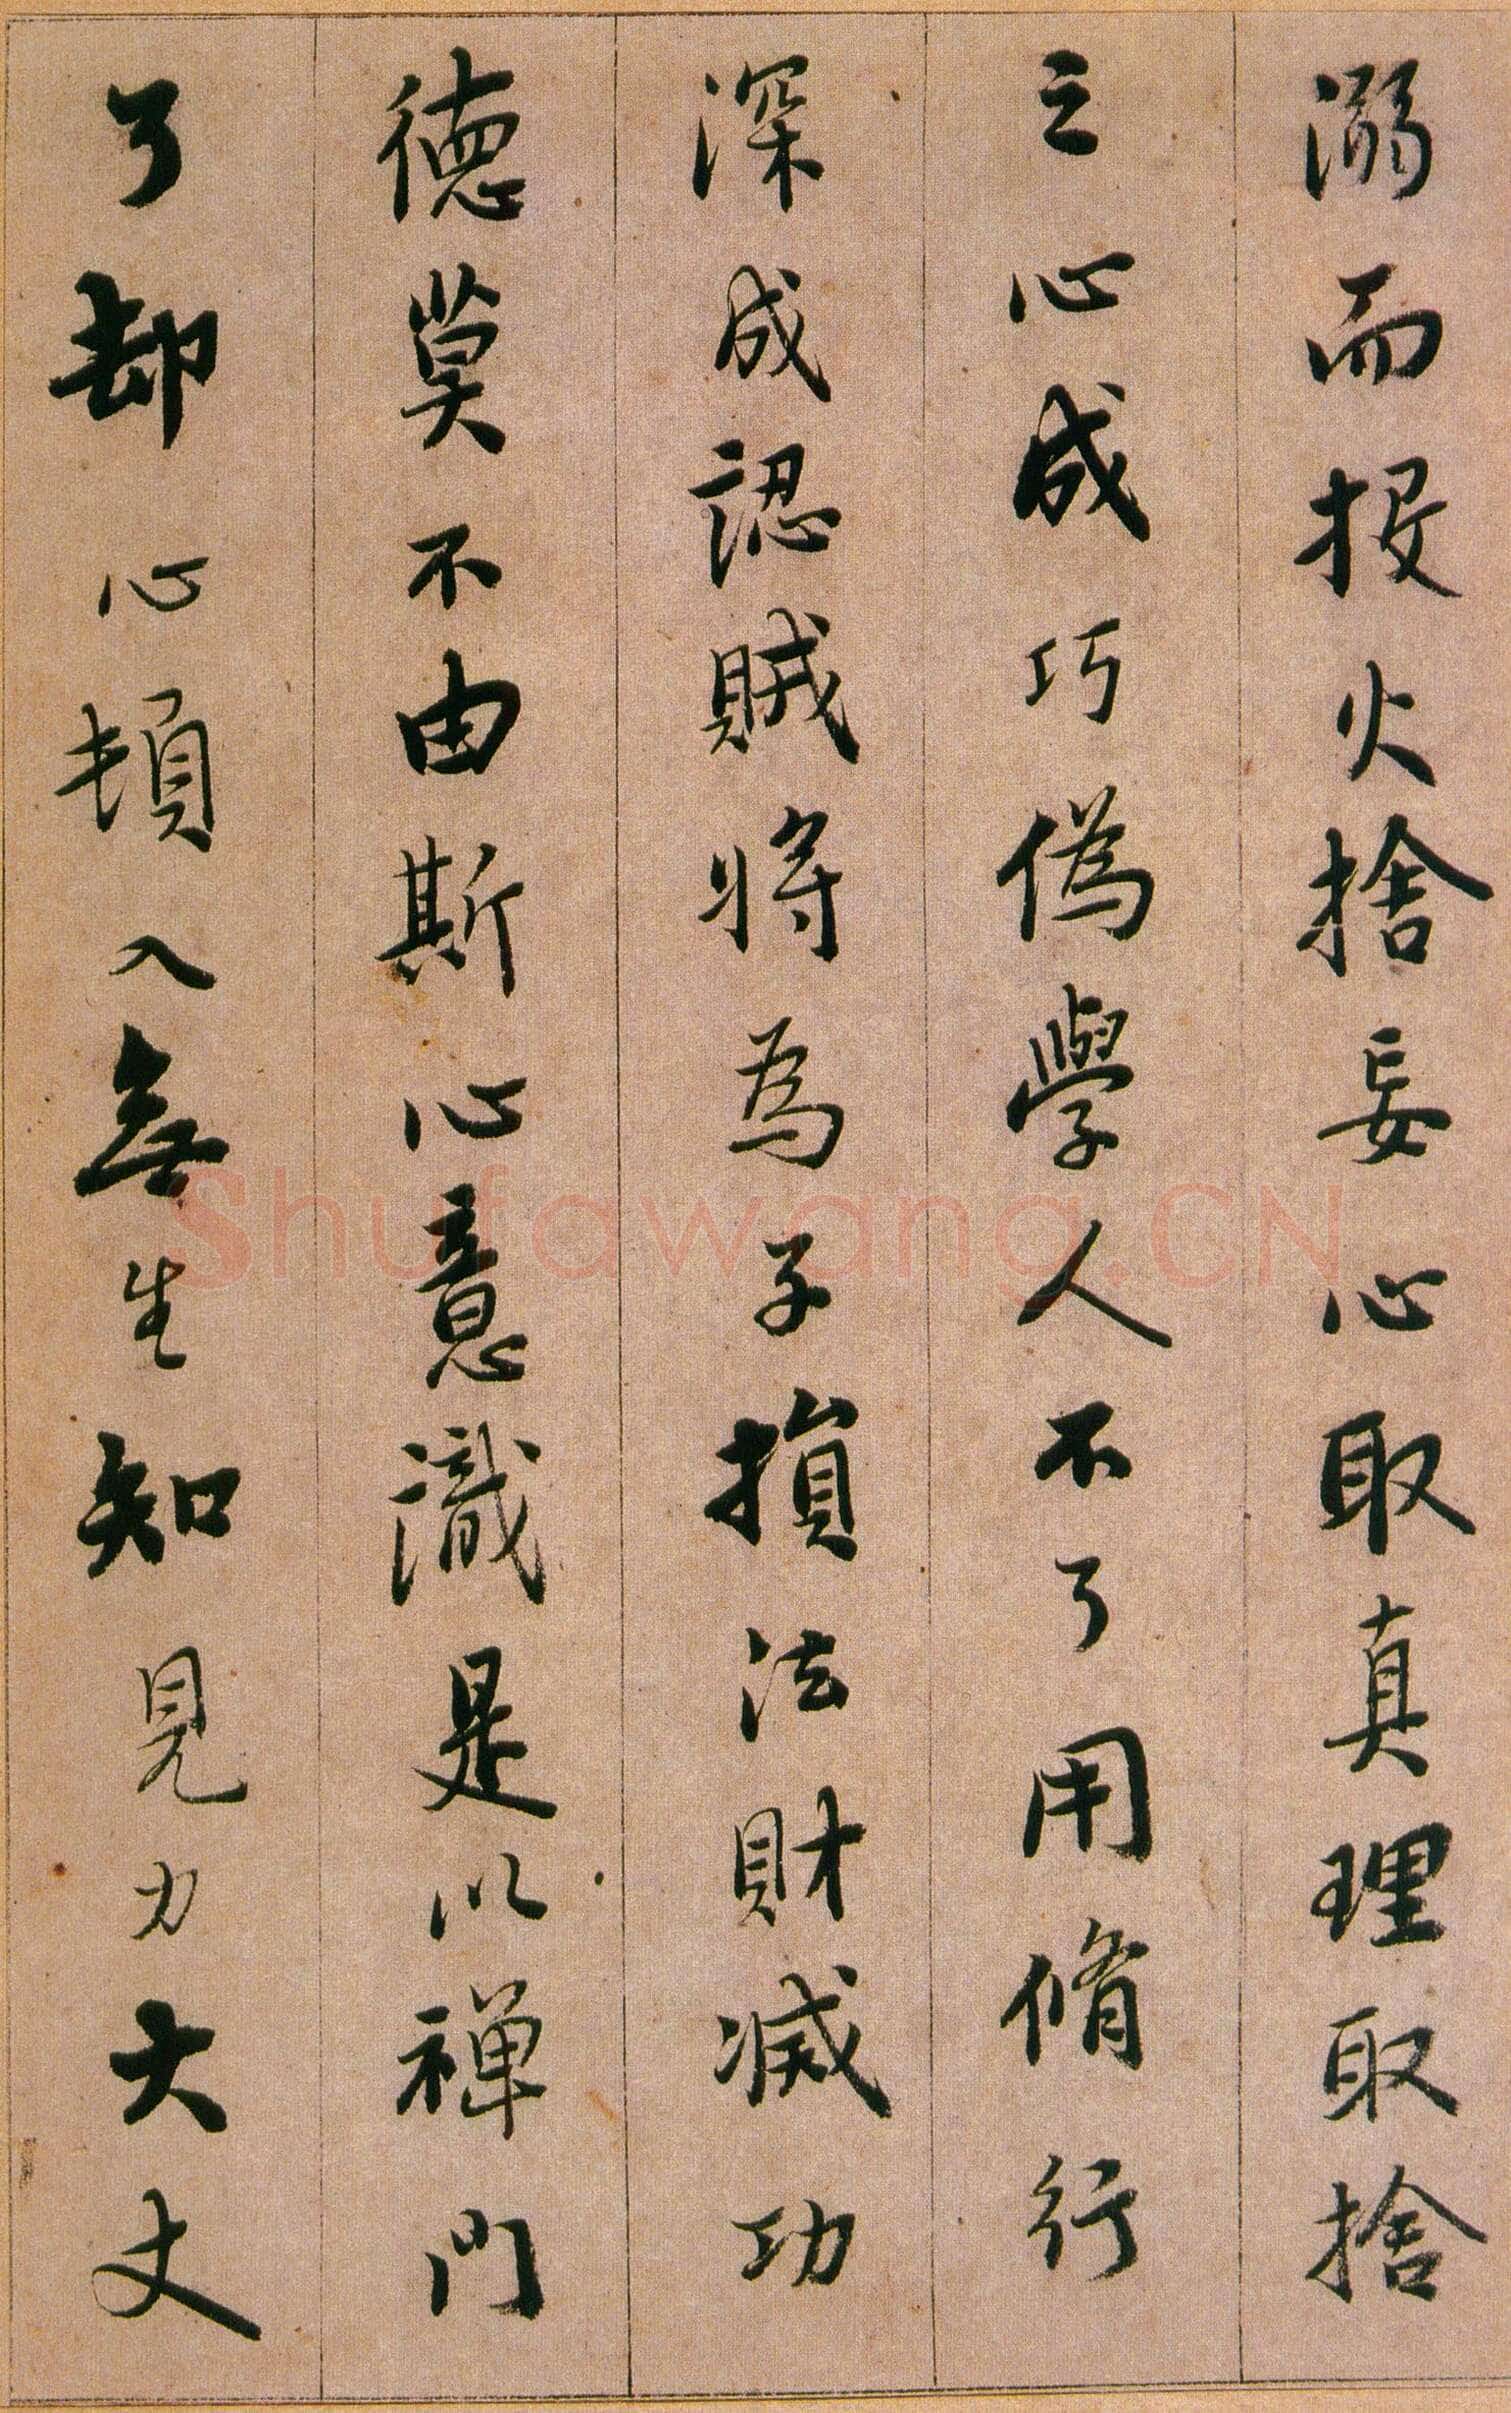 溺而投火捨妄心取真理取捨
之心成巧偽學人不了用脩行
深成認賊將為子損法財滅功
德莫不由斯心意識是以禅門
了却心頓入無生知見力大丈
Shufawang.CN